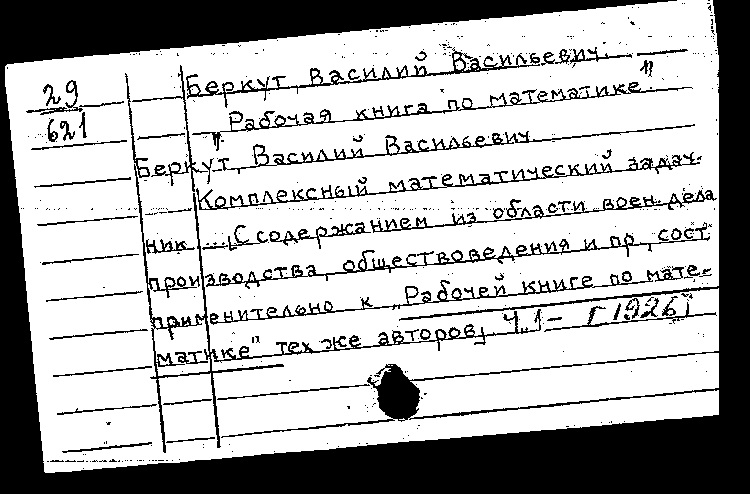 29
621
Беркут, Василий Васильевич.
"Рабочая книга по математике".
Беркут, Василий Васильевич.
Комплексный математический задач-
ник ... [С содержанием из области воен. дела
производства, обществоведения и пр., сост.
применительно к „Рабочей книге по мате-
матике" тех же авторов] Ч. 1 - [1926]